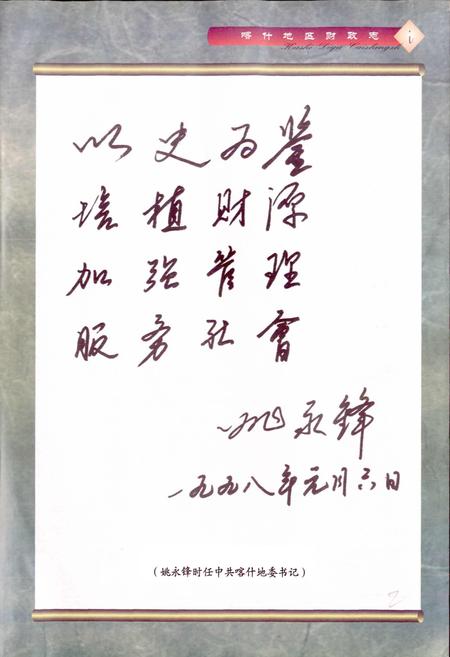 喀什地区财政志
Kashi Diqu Caizhengzhi
i
以史为鉴
培植财源
加强管理
服务社會
姚永锋
一九九八年元月六日
（姚永锋时任中共喀什地委书记）
2